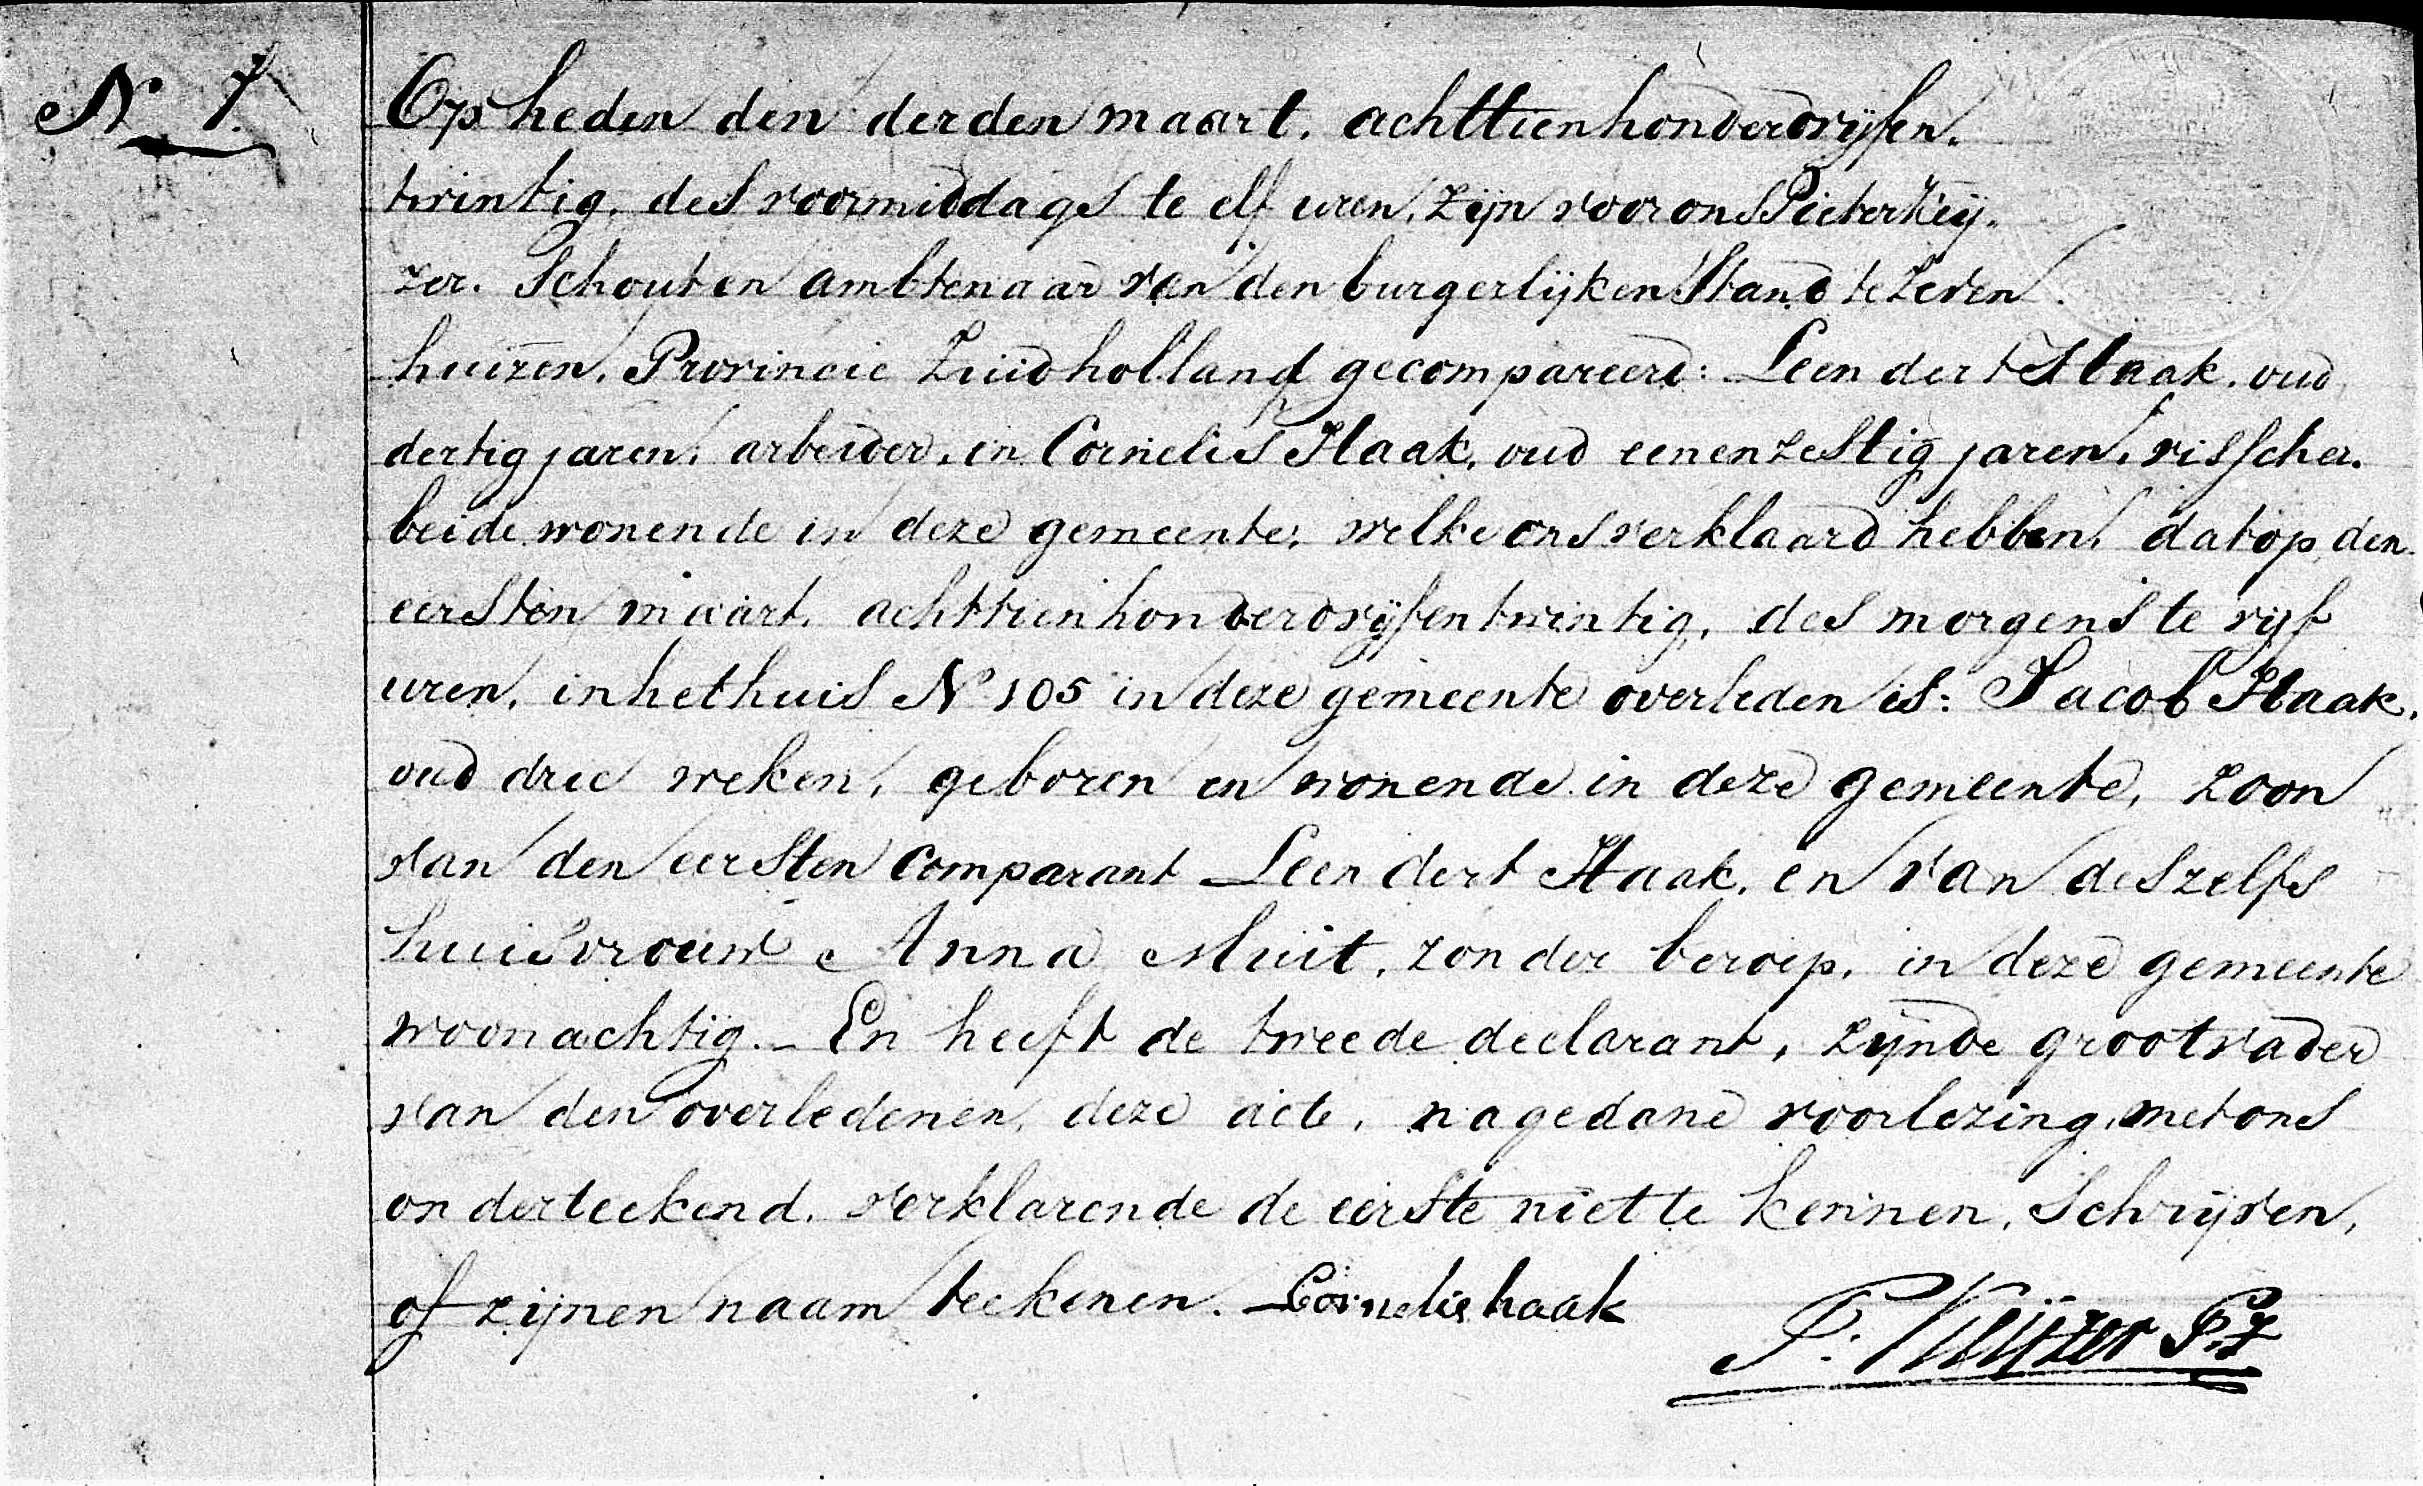 N 7.
Op heden den derden maart. achttienhonderdvijfen.
twintig, des voormiddags te elf uren, zijn voor ons Pieter Keij-
zer. Schout en ambtenaar van den burgerlijken Stand te Zeven.
huizen. Provincie Zuidholland gecompareerd: Leendert Haak. oud
dertig jaren, arbeider, en Cornelis Haak, oud eenenzestig jaren, visscher.
beide wonende in deze gemeente, welke ons verklaard hebben, dat op den
eersten maart, achttienhonderdvijfentwintig, des morgens te vijf
uren, in het huis N 105 in deze gemeente overleden is: Jacob Haak.
oud drie weken, geboren en wonende in deze gemeente, zoon
van den eersten Comparant Leendert Haak, en van deszelfs
huisvrouw Anna Muit, zonder beroep, in deze gemeente
woonachtig. — En heeft de tweede declarant, zijnde grootvader
van den overledenen, deze acte, na gedane voorlezing, met ons
onderteekend. verklarende de eerste niet te kennen, Schrijven,
of zijnen naam teekenen. Cornelis haak
P. Keijzer Pz